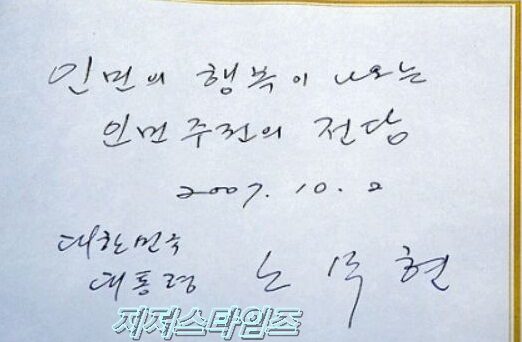 인민의 행복이 나오는
인민 주권의 전당
2007. 10. 2
대한민국
대통령 노무현
지저스타임즈